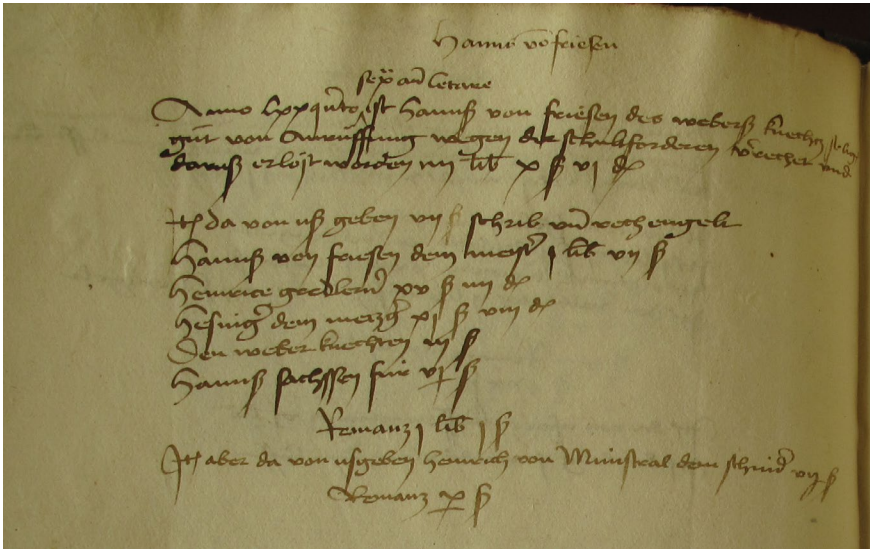 Hanns võ friesen
sexta añ letare
Anno lxxqũto ist Hannß von friesen des weberß knechtz
gůt von Anrůffung wegen der schultforderen v̾rechet vnd
daruß erlöst worden iiij lib x ß vj d
Itē da von uß geben vij ß schrib vñ rechengelt
Hannß von friesen dem meist̾ j lib vij ß
Heinrice xv ß iiij d
dem metzg̾ xj ß viij d
Den weber knechten iij ß
Hannß sachssen für vj ß
Remanz j lib j ß
Itē aber da von usgeben heinrich von Munstral dem schnid̾ vij ß
Remanz x ß